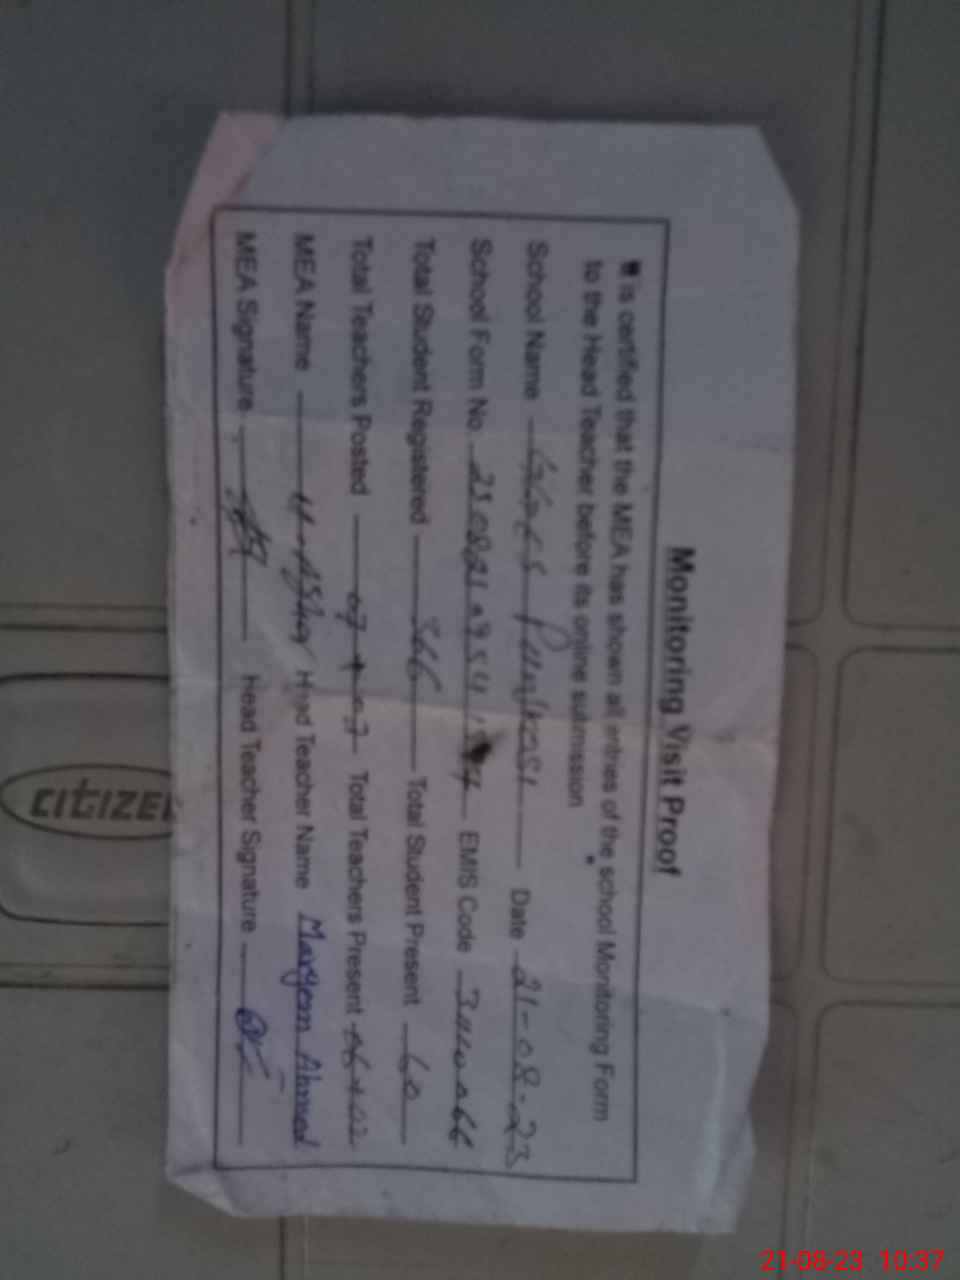 Monitoring Visit Proof
is certified that the MEA has shown all entries of the school Monitoring Form
to the Head Teacher before its online submission
School Name Date 21-08-23
School Form No. EMIS Code
Total Student Registered 366 Total Student Present 60
Total Teachers Posted 07 + 03 Total Teachers Present 06+02
MEA Name Head Teacher Name Maryem Ahmed
MEA Signature Head Teacher Signature
CITIZEN
21-08-23 10:37